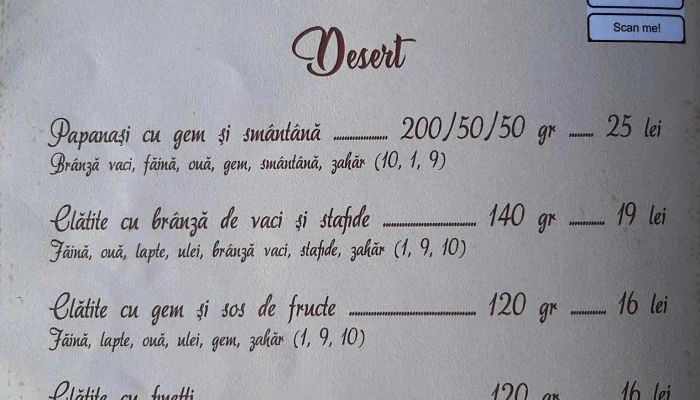 Scan me!
Desert
Papanași cu gem și smântână ................ 200/50/50 gr ....... 25 lei
Brânză vaci, făină, ouă, gem, smântână, zahăr (10, 1, 9)
Clătite cu brânză de vaci și stafide ........................... 140 gr .......... 19 lei
Făină, ouă, lapte, ulei, brânză vaci, stafide, zahăr (1, 9, 10)
Clătite cu gem și sos de fructe ..................................... 120 gr .......... 16 lei
Făină, lapte, ouă, ulei, gem, zahăr (1, 9, 10)
Clătite cu finetti 120 gr 16 lei